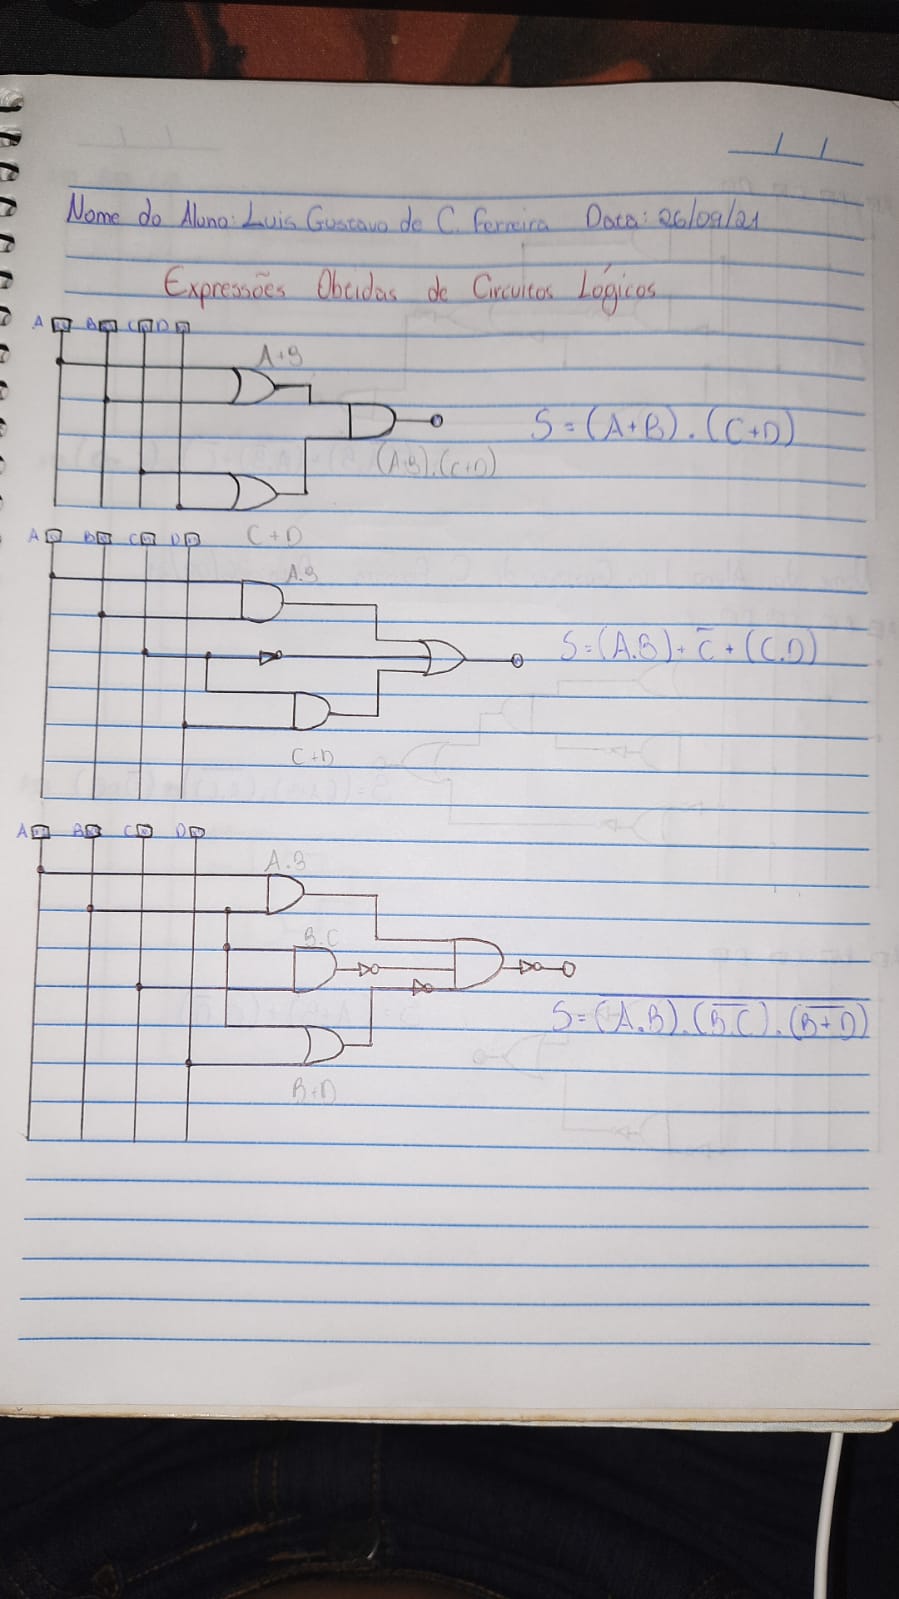 Nome do Aluno: Luis Gustavo de C. Ferreira Data: 26/09/21
Expressões Obtidas de Circuitos Lógicos
A B C D
A+B
S = (A+B) . (C+D)
(A+B).(C+D)
C+D
A B C D
A.B
S = (A.B) + C̅ + (C.D)
C+D
A B C D
A.B
B.C
S = \overline{(A.B).(\overline{B.C}).(\overline{B+D})}
B+D